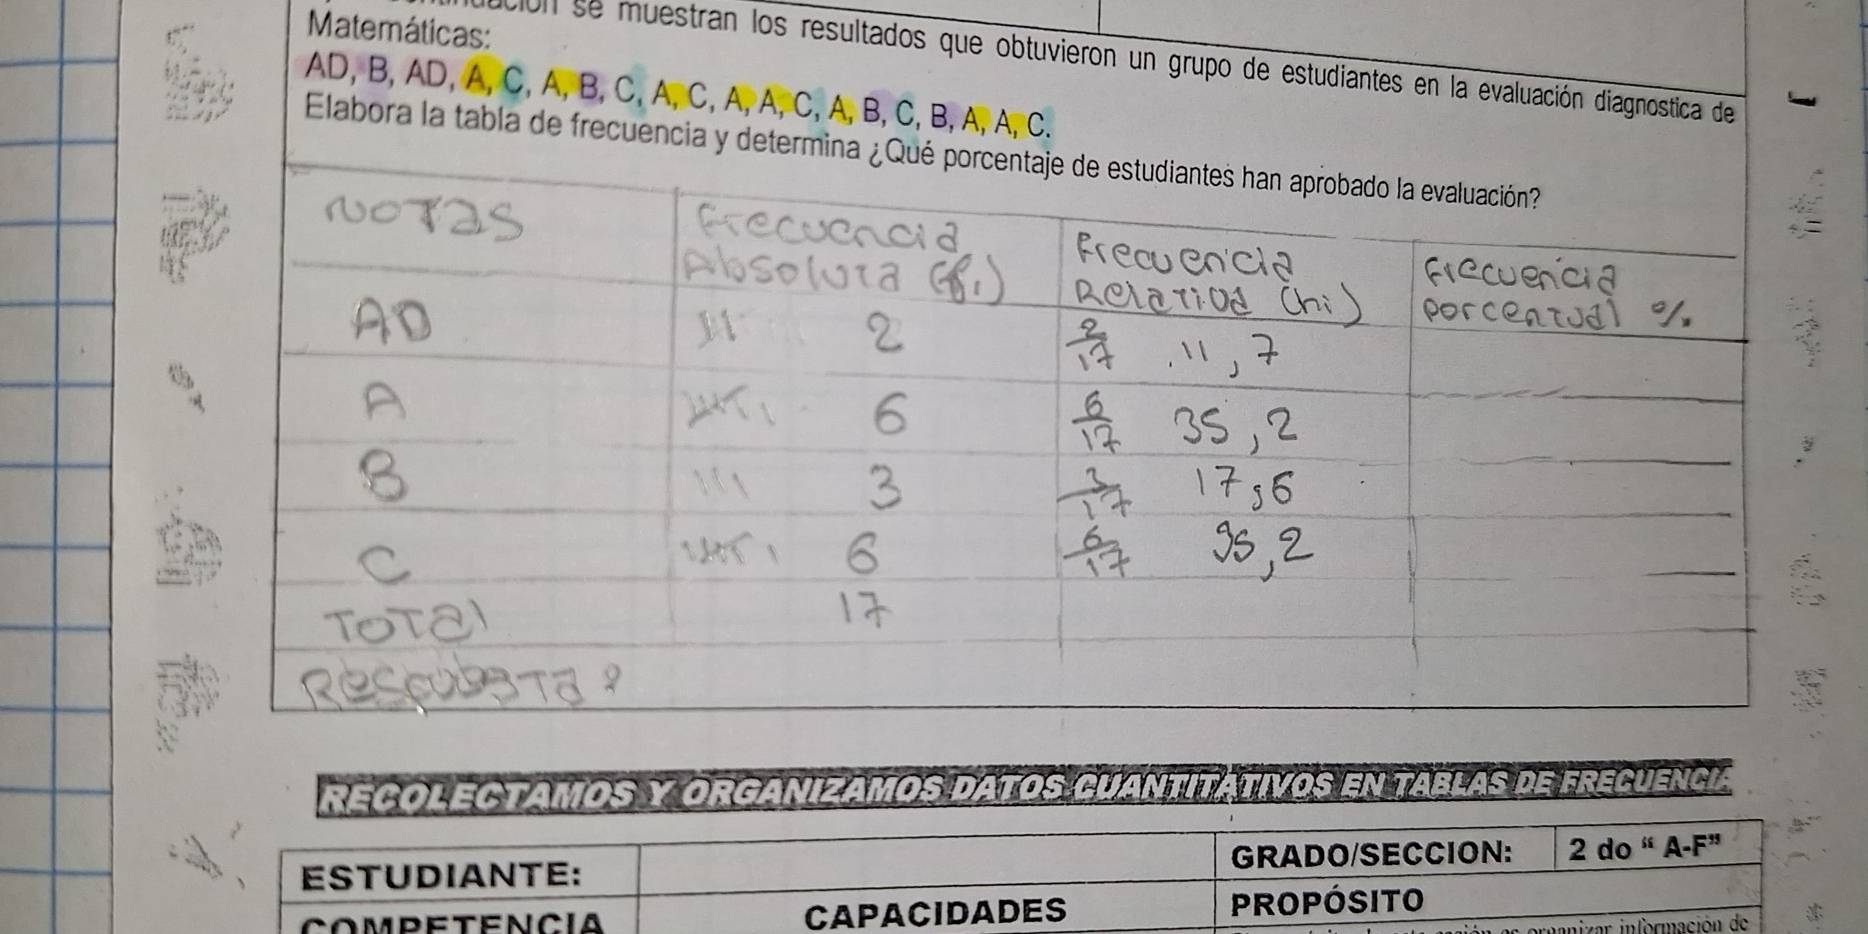 se muestran los resultados que obtuvieron un grupo de estudiantes en la evaluación diagnostica de
Matemáticas:
AD, B, AD, A, C, A, B, C, A, C, A, A, C, A, B, C, B, A, A, C.
Elabora la tabla de frecuencia y determina ¿Qué porcentaje de estudiantes han aprobado la evaluación?
NOTAS
Frecuencia Absoluta (fi)
Frecuencia Relativa (hi)
Frecuencia porcentual %
AD 2 2/17 .11,7
A 6 6/17 35,2
B 3 3/17 17,6
C 6 6/17 35,2
TOTAl 17
RECOLECTAMOS Y ORGANIZAMOS DATOS CUANTITATIVOS EN TABLAS DE FRECUENCIA
ESTUDIANTE: GRADO/SECCION: 2 do “ A-F”
COMPETENCIA CAPACIDADES PROPÓSITO
organizar información de